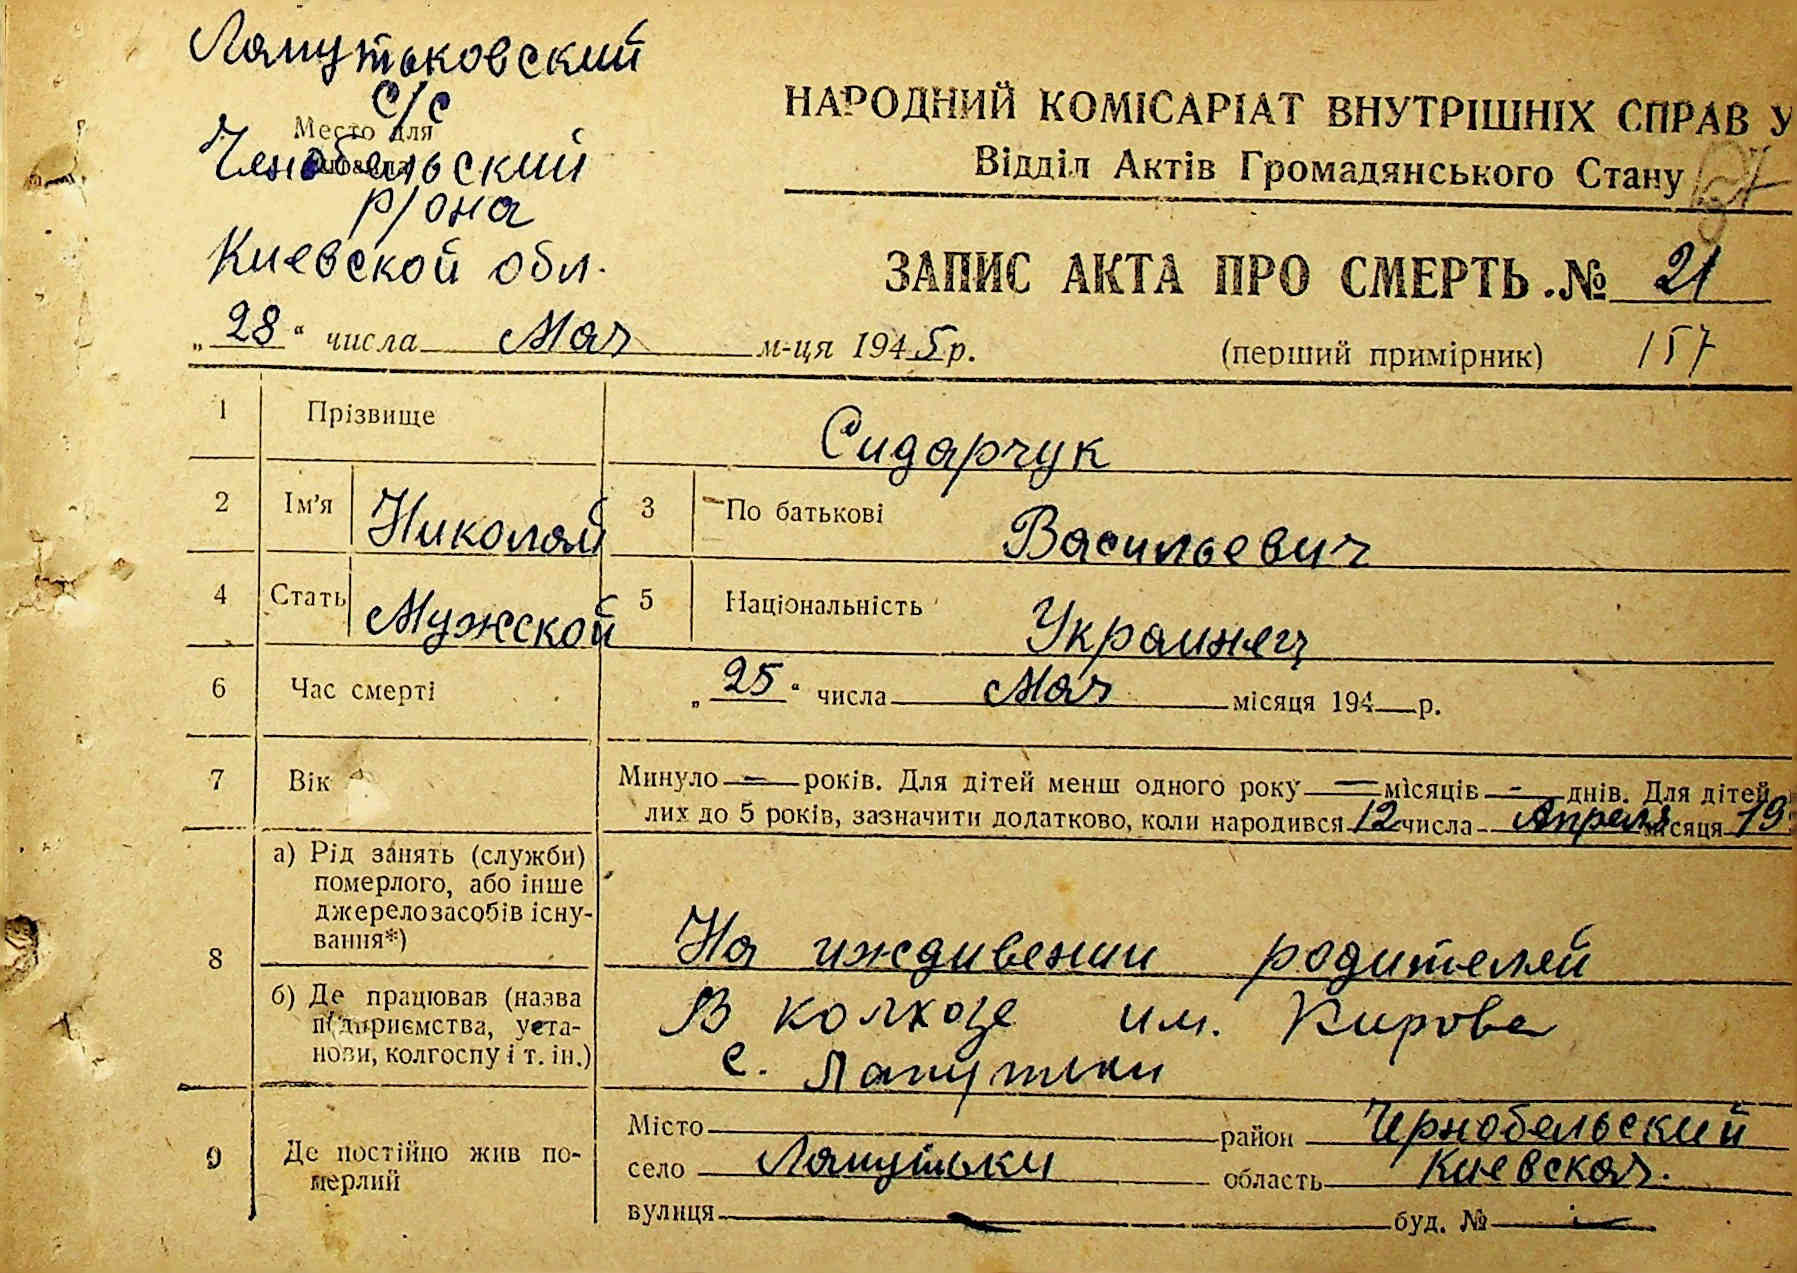 Лапутьковский
с/с
Место для
штампа
Ченобельский
р/она
Киевской обл.
НАРОДНИЙ КОМІСАРІАТ ВНУТРІШНІХ СПРАВ У
Відділ Актів Громадянського Стану
ЗАПИС АКТА ПРО СМЕРТЬ.№ 21
„28“ числа Мая м-ця 1945р. (перший примірник) 157
1 Прізвище Сидарчук
2 Ім'я Николай 3 По батькові Васильевич
4 Стать Мужской 5 Національність Украинец
6 Час смерті „25“ числа Мая місяця 194 р.
7 Вік Минуло — років. Для дітей менш одного року — місяців - днів. Для дітей
лих до 5 років, зазначити додатково, коли народився 12 числа Апреля місяця 19
а) Рід занять (служби)
померлого, або інше
джерело засобів існу-
вання*)
На иждивении родителей
8
б) Де працював (назва
підприємства, уста-
нови, колгоспу і т. ін.)
В колхозе им. Кирова
с. Лапутьки
9 Де постійно жив по-
мерлий
Місто район Чернобельский
село Лапутьки область Киевская.
вулиця — буд. № —